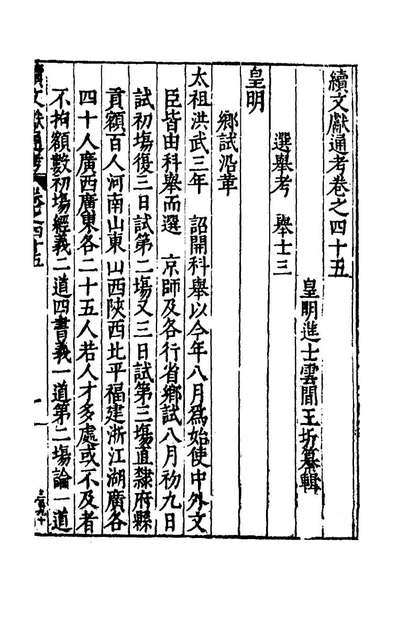 續文獻通考卷之四十五
皇明進士雲間王圻纂輯
選舉考 舉士三
皇明
鄉試沿革
太祖洪武三年 詔開科舉以今年八月爲始使中外文
臣皆由科舉而選 京師及各行省鄉試八月初九日
試初場復三日試第二場又三日試第三場直隸府縣
貢額百人河南山東山西陝西北平福建浙江湖廣各
四十人廣西廣東各二十五人若人才多處或不及者
不拘額數初場經義二道四書義一道第二場論一道
續文獻通考 卷之四十五